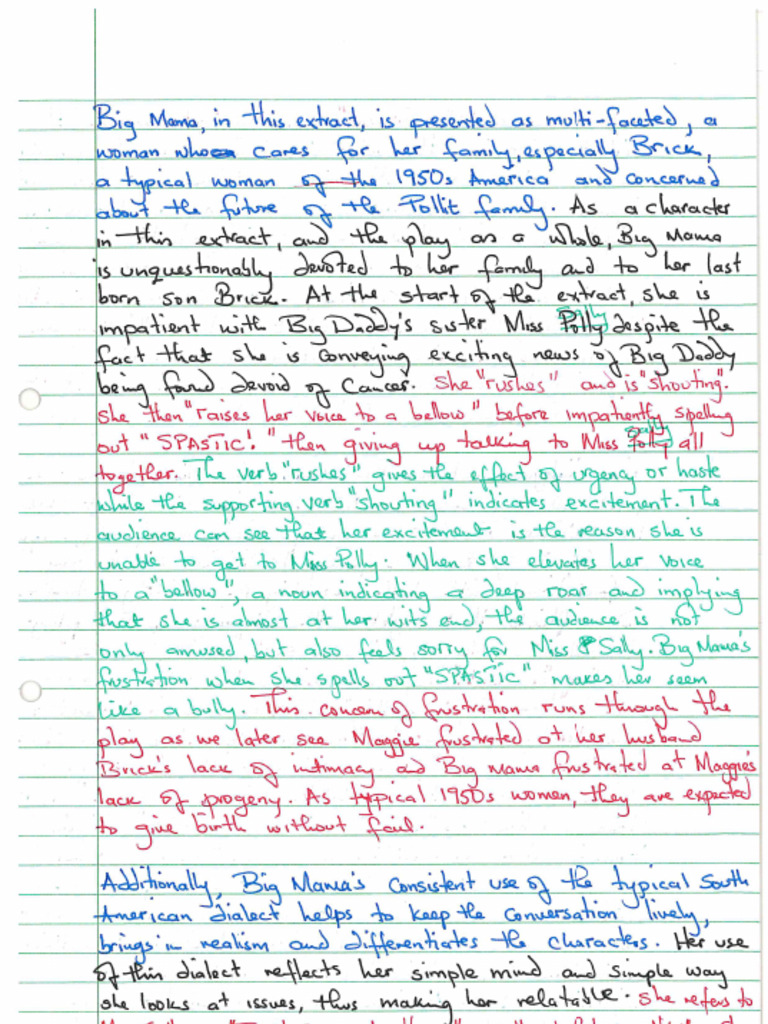 Big Mama, in this extract, is presented as multi-faceted, a
woman who cares for her family, especially Brick,
a typical woman of the 1950s America and concerned
about the future of the Pollit family. As a character
in this extract, and the play as a whole, Big Mama
is unquestionably devoted to her family and to her last
born son Brick. At the start of the extract, she is
impatient with Big Daddy's sister Miss Sally despite the
fact that she is conveying exciting news of Big Daddy
being found devoid of Cancer. She "rushes" and is "shouting".
She then "raises her voice to a bellow" before impatiently spelling
out "SPASTIC!" then giving up talking to Miss Sally all
together. The verb "rushes" gives the effect of urgency or haste
while the supporting verb "shouting" indicates excitement. The
audience can see that her excitement is the reason she is
unable to get to Miss Polly. When she elevates her voice
to a "bellow", a noun indicating a deep roar and implying
that she is almost at her wits end, the audience is not
only amused, but also feels sorry for Miss Sally. Big Mama's
frustration when she spells out "SPASTIC" makes her seem
like a bully. This concern of frustration runs through the
play as we later see Maggie frustrated at her husband
Brick's lack of intimacy and Big mama frustrated at Maggie's
lack of progeny. As typical 1950s women, they are expected
to give birth without fail.
Additionally, Big Mama's consistent use of the typical South
American dialect helps to keep the conversation lively,
brings in realism and differentiates the characters. Her use
of this dialect reflects her simple mind and simple way
she looks at issues, thus making her relatable. She refers to